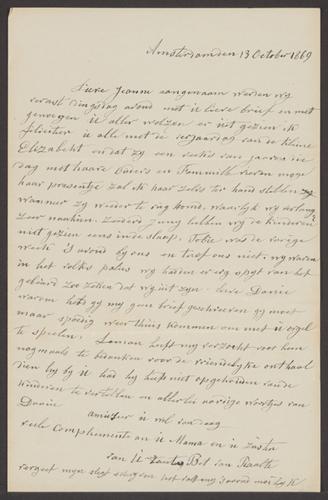 Amsterdam den 13 October 1869
Lieve Jeanne aangenaam werden wy
verrast dingsdag avond met u lieve brief en met
genoegen u aller welzen er uit gezien ik
feliciter u alle met de verjaardag van de kleine
Elizabeth en dat zy een reeks van jaren die
dag met haare Ouders en Fammilie vieren moge
haar presentje zal ik haar zelve ter hand stellen
wanneer zy weder te rug komt. waarlyk wy verlang
zeer naar hen. Zonderd Jung hebben wy de kinderen
niet gezien eens in de sjoel. Tobie was de vorige
week 's avond by ons en trof ons niet. wy waren
in het volks palys wy hadden er erg spyt van het
gebeurd zoo zelden dat wy uit zyn. lieve Danie
waarom hebt gy my geen brief geschreven gy moet
maar spoedig weer thuis kommen om met u orgel
te speelen. Laman heeft my verzocht voor hem
nogmaals te bedanken voor de vriendelyke onthaal
dien hy by u had hy heeft niet opgehouden van de
kinderen te vertellen en allerlei aardige woordjes van
Danie
amuseer u wel vandaag
veele Complimente aan u Mama en u Zuster
van U Tante Bet van Raalte
vergeet myn slegt schryven niet het is